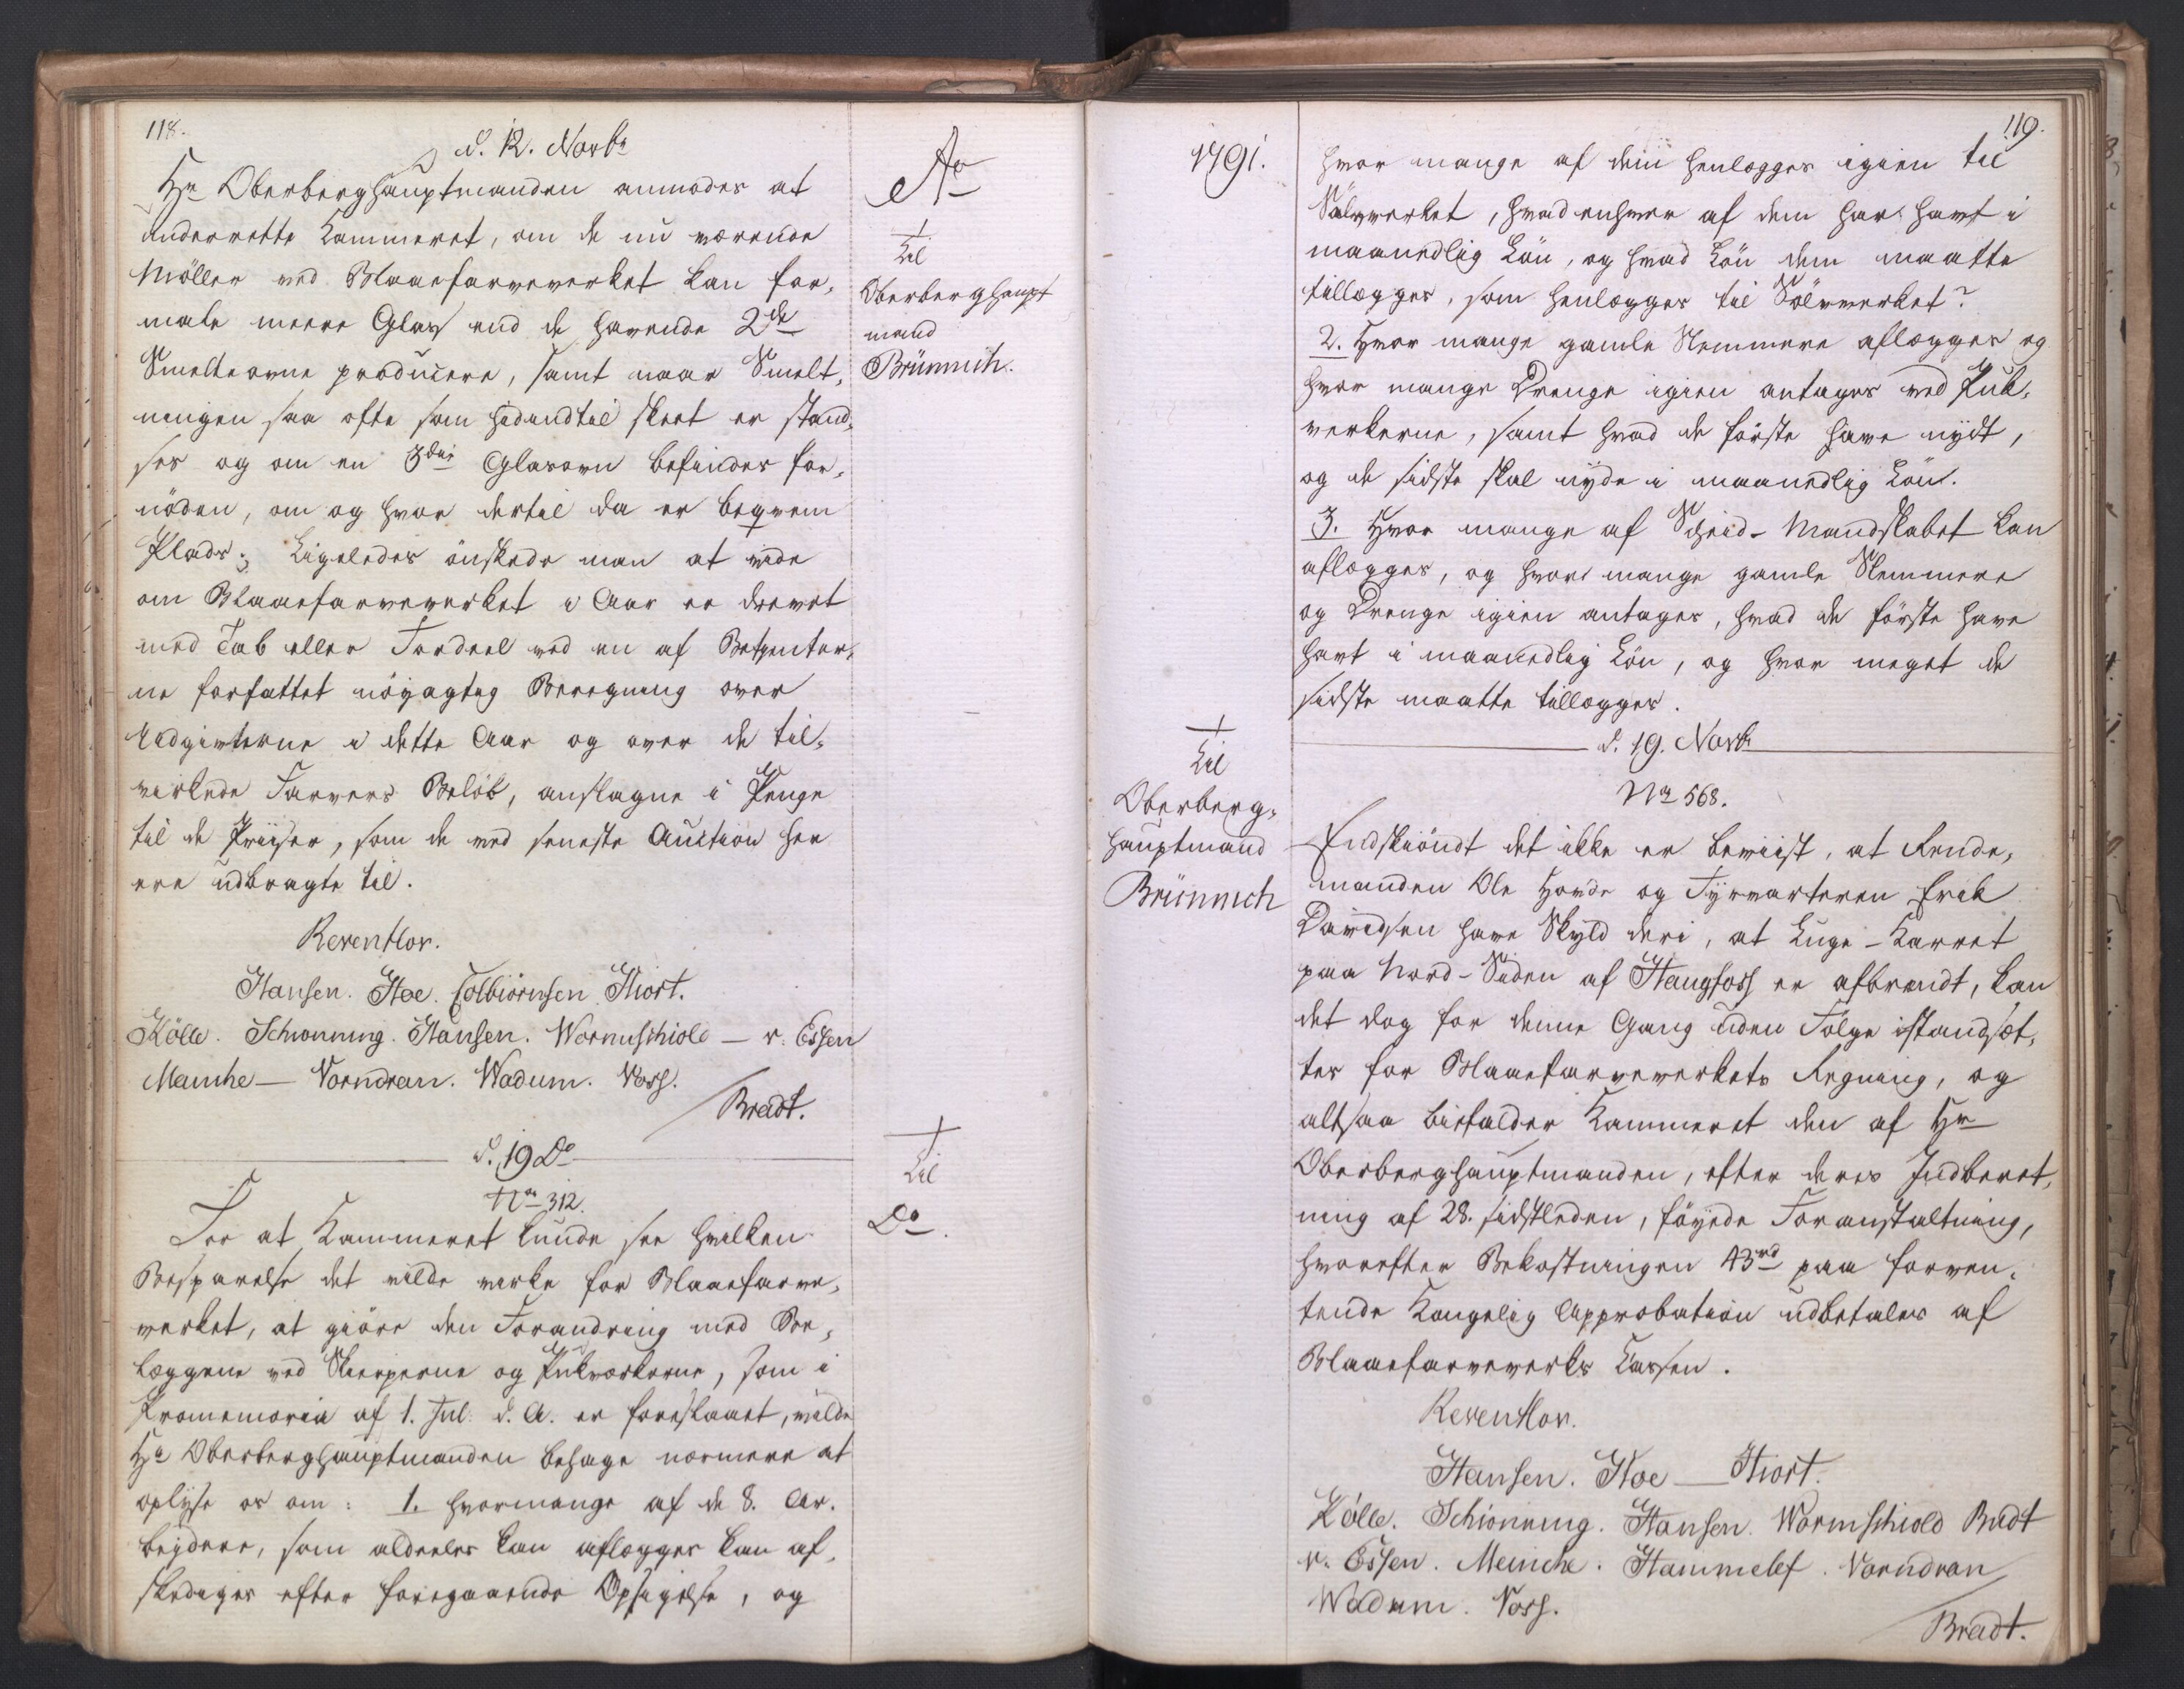 118.
d. 12. Novbr
Ao
Hr Oberberghauptmanden anmodes at
underrette Kammeret, om de nu værende
Möller ved Blaaefarveverket kan for,
male meere Glas end de havende 2de
Smelteovne producere, samt naar Smelt,
ningen saa ofte som hidindtil skeet er stand,
ses og om en 3die Glasovn befindes for,
nöden, om og hvor dertil da er beqvem
Plads; Ligeledes önskede man at vide
om Blaaefarveverket i Aar er drevet
med Tab eller Fordeel ved en af Betienter,
ne forfattet nöyagtig Beregning over
Udgivterne i dette Aar og over de til,
virkede Farvers Belöb, anslagne i Penge
til de Priiser, som de ved seneste Auction her
ere udbragte til.
Til
Oberberghaupt
mand
Brünnich.
Reventlov.
Hansen. Hoe. Colbiörnsen Hiort.
Kölle. Schionning. Hansen. Wormschiold — v. Essen
Meinche — Vorndran. Wadum. Voss.
Bradt.
d. 19 Do
No 312.
Til
Do.
For at Kammeret kunde see hvilken
Besparelse det vilde virke for Blaaefarve,
verket, at giöre den Forandring med Be,
læggene ved Skierperne og Pukværkerne, som i
Promemoria af 1. Jul. d. A. er foreslaaet, vilde
Hr Oberberghauptmanden behage nærmere at
oplyse os om: 1. hvormange af de 8. Ar.
beydere, som aldeeles kan aflægges kan af,
skediges efter foregaaende Opsigelse, og
119.
1791.
hvor mange af dem henlægges igien til
Sölvverket, hvad enhver af dem har havt i
maanedlig Lön, og hvad Lön dem maatte
tillægges, som henlægges til Sölvverket?
2. Hvor mange gamle Stemmere aflægges og
hvor mange Drenge igien antages ved Puk,
verkerne, samt hvad de förste have nydt,
og de sidste skal nyde i maanedlig Lön.
3. Hvor mange af Scheid-Mandskabet kan
aflægges, og hvor mange gamle Stemmere
og Drenge igien antages, hvad de förste have
havt i maanedlig Lön, og hvor meget de
sidste maatte tillægges.
d. 19. Novbr
No 568.
Til
Oberberg,
hauptmand
Brünnich
Endskiöndt det ikke er beviist, at Rende,
manden Ole Hovde og Fyrvarteren Erik
Davidsen have Skyld deri, at Luge-Karret
paa Nord-Siden af Haugfoss er afbrændt, kan
det dog for denne Gang uden Fölge istandsæt,
tes for Blaaefarveverkets Regning, og
altsaa bifalder Kammeret den af Hr
Oberberghauptmanden, efter deres Indberet,
ning af 28. sidstleden, föyede Foranstaltning,
hvorefter Bekostningen 43rd paa forven,
tende Kongelig Approbation udbetales af
Blaaefarveverks Cassen.
Reventlov.
Hansen. Hoe — Hiort.
Kölle. Schionning. Hansen. Wormschiold Budt
v. Essen. Meinche. Hammelef. Vorndran
Wadum. Voss.
Bradt.